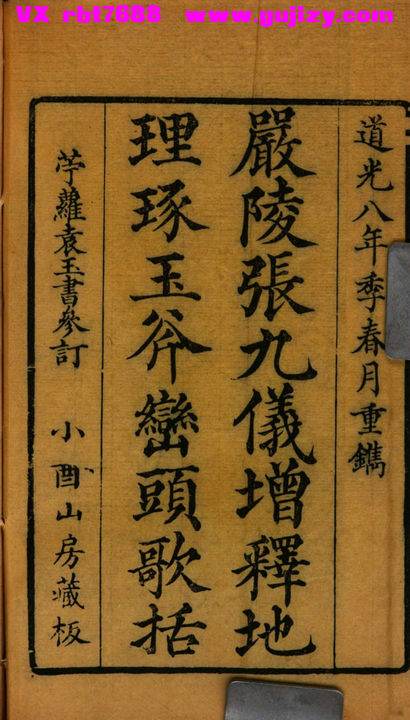 VX rbt7688 www.gujizy.com
道光八年季春月重鐫
嚴陵張九儀增釋地
理琢玉斧巒頭歌括
苧蘿袁玉書參訂 小酉山房藏板